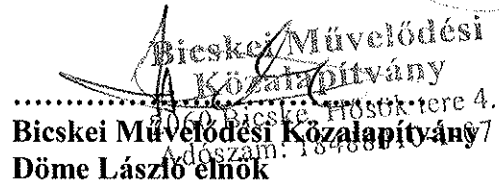 Bicskei Művelődési
Közalapítvány
2060 Bicske, Hősök tere 4.
Adószám:
Bicskei Művelődési Közalapítvány
Döme László elnök